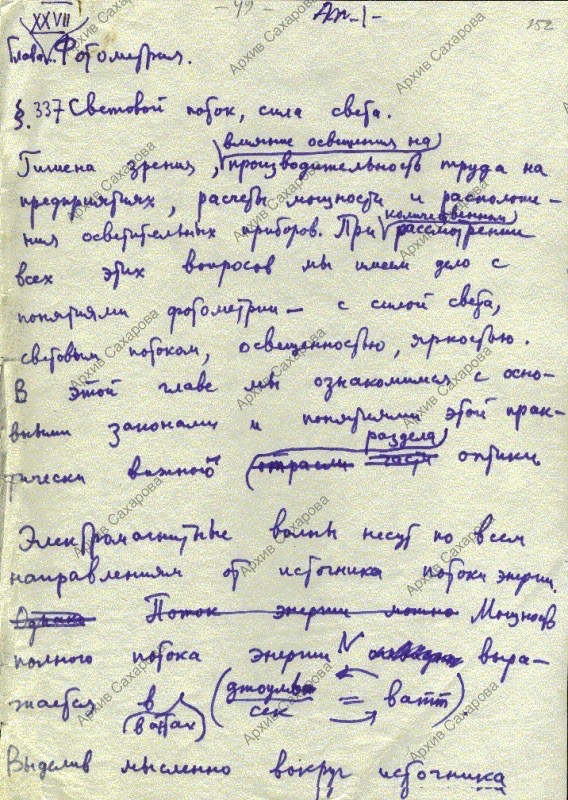 XXVII - 49 - Дп-1- 152
Глава. Фотометрия.
§. 337 Световой поток, сила света.
влияние освещения на
Гигиена зрения, производительность труда на
предприятиях, расчеты мощности и расположе-
количественном
ния осветительных приборов. При рассмотрении
всех этих вопросов мы имеем дело с
понятиями фотометрии — с силой света,
световым потоком, освещенностью, яркостью.
В этой главе мы ознакомимся с осно-
вными законами и понятиями этой прак-
раздела
тически важной отрасли части оптики
Электромагнитные волны несут по всем
направлениям от источника потоки энергии.
Однако Поток энергии можно Мощность
полного потока энергии N выра-
жается в (джоуль/сек = ватт).
ваттах
Выделив мысленно вокруг источника
Архив Сахарова